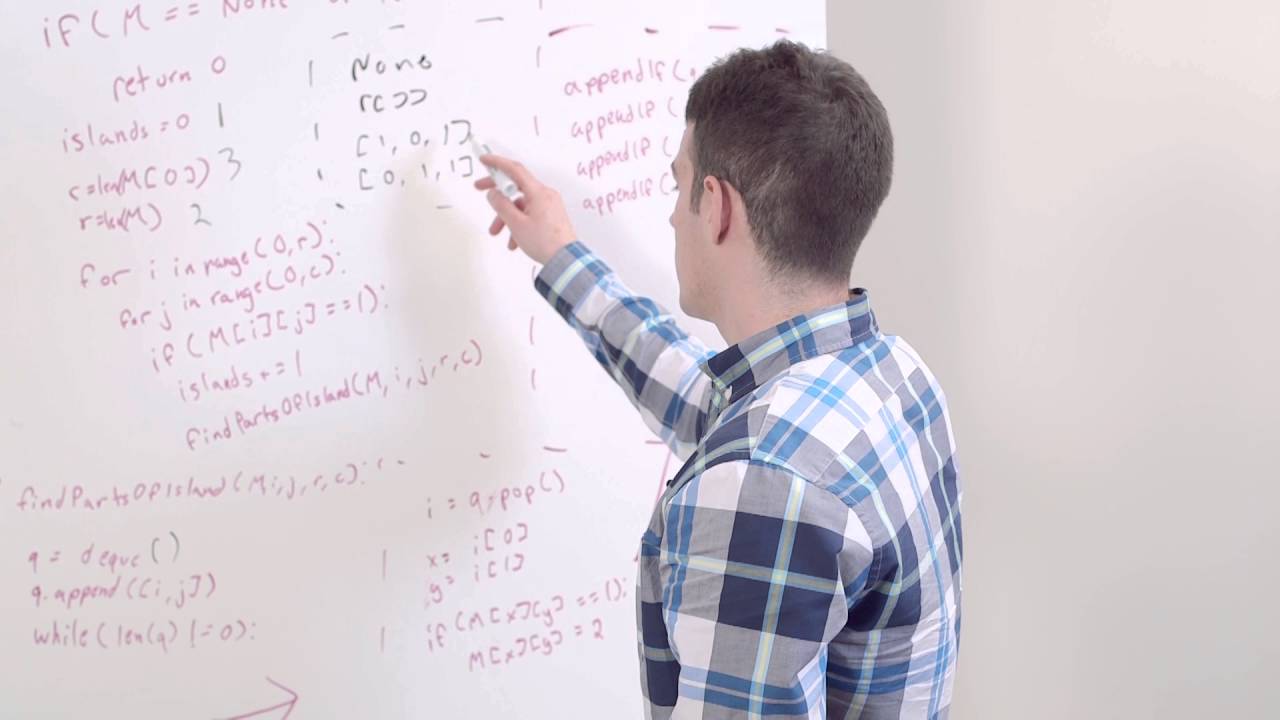 if(M == None
return 0
islands = 0 1
c=len(M[0]) 3
r=len(M) 2
for i in range(0,r):
for j in range(0,c):
if(M[i][j]==1):
islands+=1
findPartsOfIsland(M,i,j,r,c)
findPartsOfIsland(M,i,j,r,c):
q = deque()
q.append([i,j])
while(len(q) != 0):
None
[1, 0, 1]
[0, 1, 1]
i = q.pop()
x= i[0]
y= i[1]
if(M[x][y]==1):
M[x][y]=2
appendIf(
appendIf(
appendIf(
appendIf(